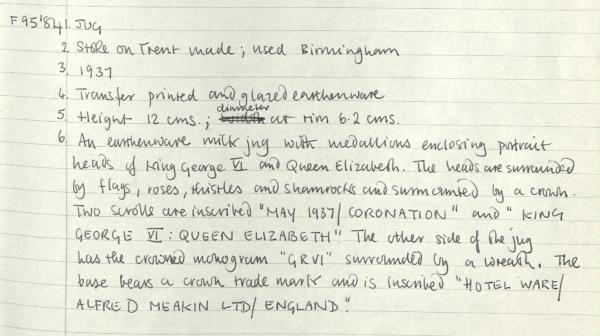 F95'84 1. JUG
2. Stoke on Trent made; used Birmingham
3. 1937
4. Transfer printed and glazed earthenware
5. Height 12 cms.; diameter at rim 6.2 cms.
6. An earthenware milk jug with medallions enclosing portrait
heads of King George VI and Queen Elizabeth. The heads are surrounded
by flags, roses, thistles and shamrocks and surmounted by a crown.
Two scrolls are inscribed "MAY 1937/ CORONATION" and "KING
GEORGE VI: QUEEN ELIZABETH". The other side of the jug
has the crowned monogram "GRVI" surrounded by a wreath. The
base bears a crown trade mark and is inscribed "HOTEL WARE/
ALFRED MEAKIN LTD/ ENGLAND".